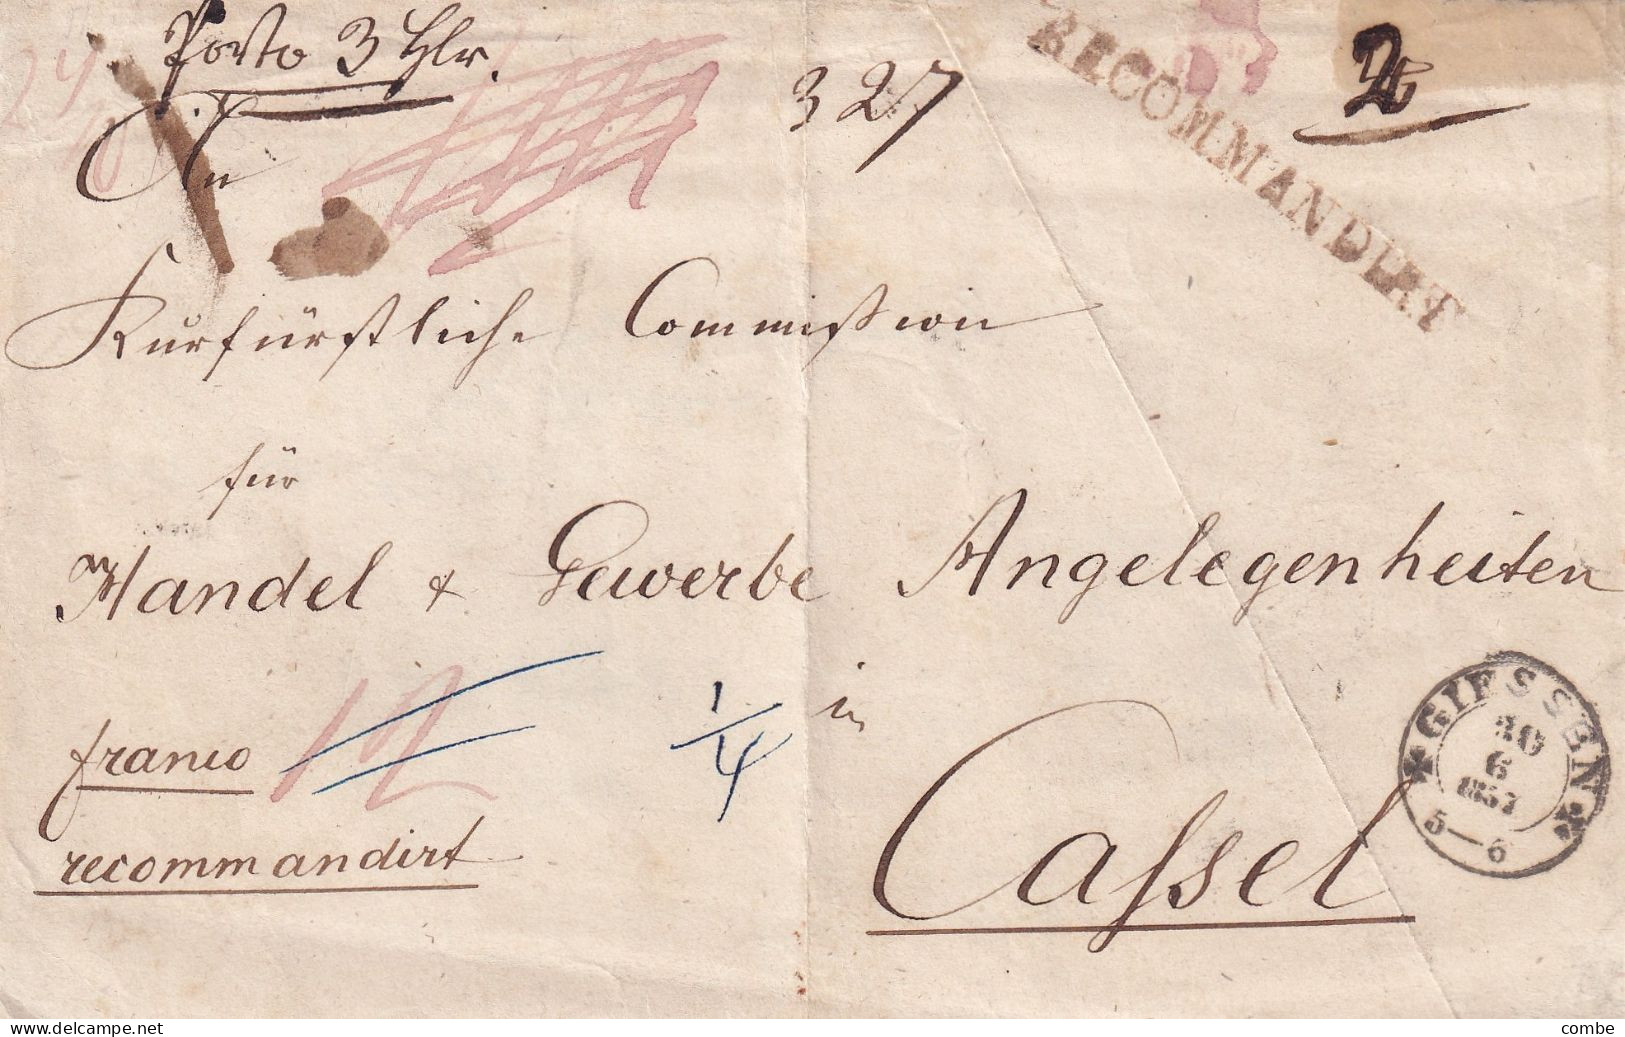 Porto 3 Hlr.
327
RECOMMANDIRT
An
Kurfürstliche Commission
für
Handel & Gewerbe Angelegenheiten
in
franco
12
1/4
recommandirt
Cassel
GIESSEN
30
6
1857
5–6
delcampe.net
combe